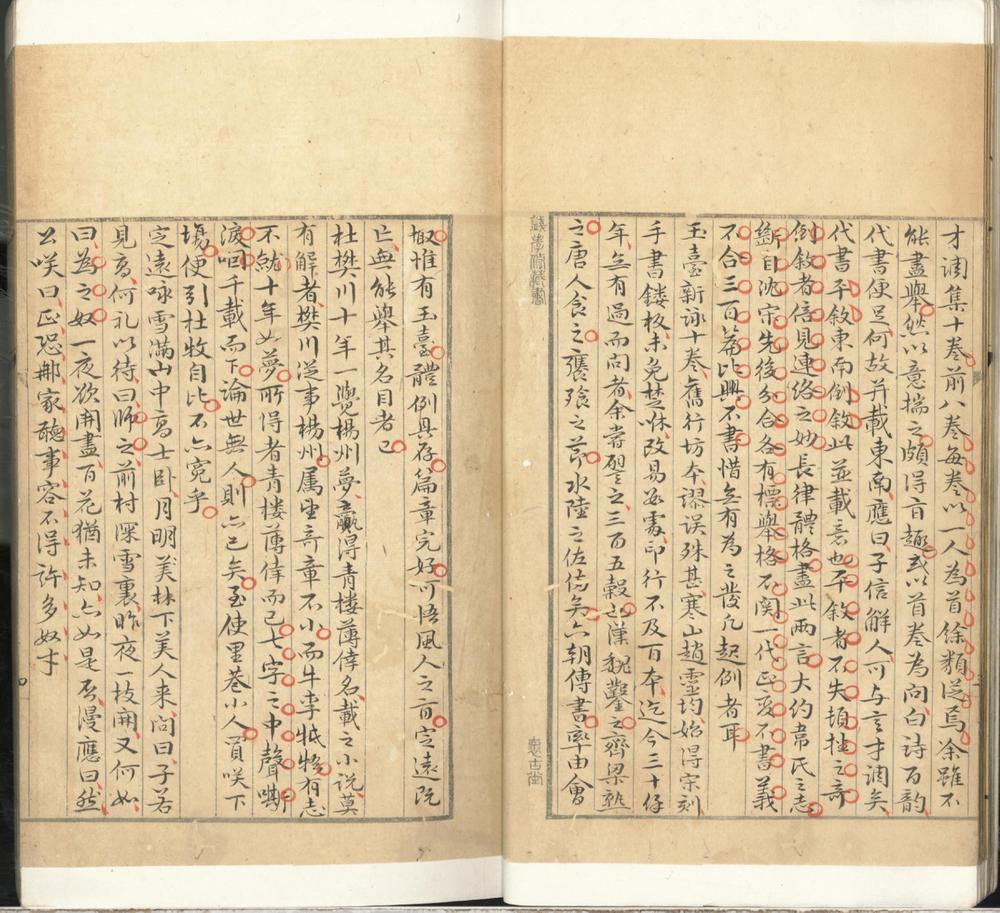 才調集十卷前八卷每卷以一人為首餘類從焉余雖不
能盡舉然以意揣之頗得首趣或以首卷為問白詩百韵
代書便足何故并載東南應曰子信解人可与言才調矣
代書平敘東南倒敘此並載意也平敘者不失頓挫之奇
倒敘者倍見連絡之妙長律體格盡此兩言大約韋氏之志
斷自沈宋先後分合各有標舉格不関一代正变不書義
不合三百篇比興不書惜無有為之發凡起例者耳
玉臺新詠十卷舊行坊本謬誤殊甚寒山趙靈均始得宋刻
手書鏤板未免楚咻改易数處印行不及百本迄今三十餘
年無有過而问者余嘗譬之三百五穀也漢魏鑿之齊梁熟
之唐人食之饔飱之節水陸之佐備矣六朝傳書率由會
冣惟有玉臺體例具存篇章完好可悟風人之旨定遠既
亡無能舉其名目者已
杜樊川十年一覺楊州夢贏得青楼薄倖名載之小说莫
有解者樊川從事楊州属望奇章不小而牛李牴牾有志
不就十年如夢所得者青楼薄倖而已七字之中聲嘶
淚咽千載而下論世無人則亦已矣至使里巷小人買咲下
塲便引杜牧自比不亦寃乎
定遠咏雪滿山中高士卧月明美林下美人来问曰子若
見高何礼以待曰師之前村深雪裏昨夜一枝開又何如
曰為之奴一夜欲開盡百花猶未知亦如是否漫應曰然
公咲曰正恐郍家聽事容不得許多奴才